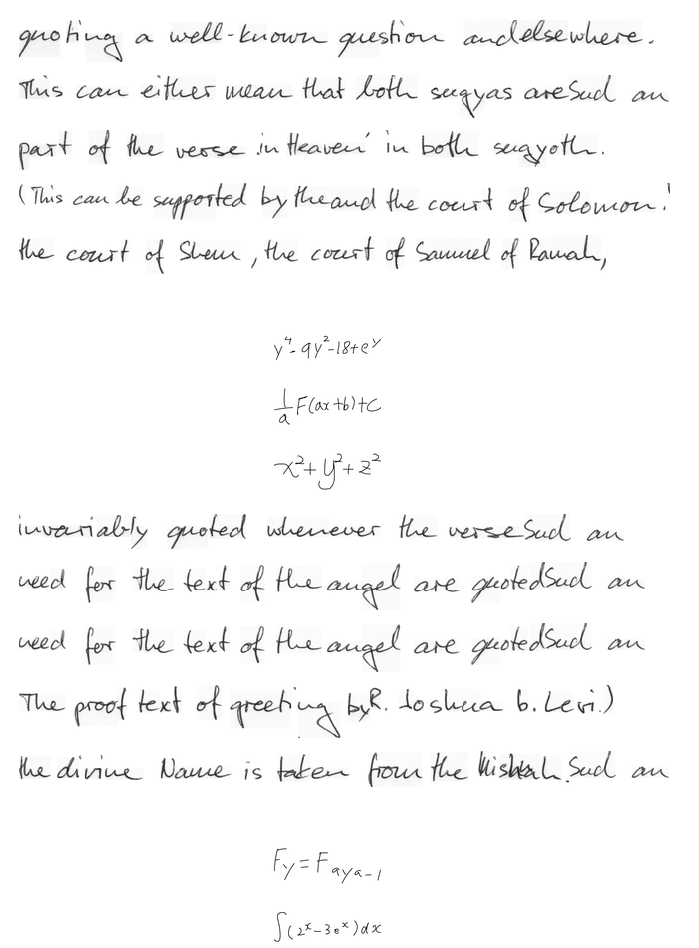 quoting a well-known question and elsewhere.
This can either mean that both sugyas are Sud an
part of the verse 'in Heaven' in both sugyoth.
(This can be supported by the and the court of Solomon.'
the court of Shem, the court of Samuel of Ramah,
y⁴-9y²-18+e^y
1/a F(ax+b)+C
x²+y²+z²
invariably quoted whenever the verse Sud an
need for the text of the angel are quoted Sud an
need for the text of the angel are quoted Sud an
The proof text of greeting by R. Joshua b. Levi.)
the divine Name is taken from the Mishnah. Sud an
F_y=F_{aya-1}
∫(2^x-3e^x)dx